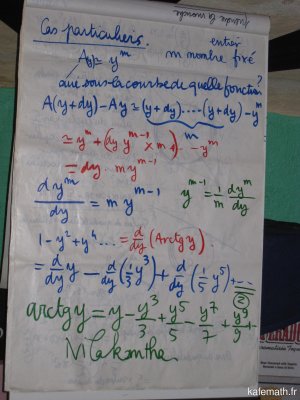 Cas particuliers. entier
A(y) = y^m m nombre fixé
aire sous la courbe de quelle fonction?
A(y+dy) - Ay = (y+dy)....(y+dy) - y^m
m
≃ y^m + (dy y^{m-1} × m) - y^m
= dy · m y^{m-1}
dy^m/dy = m y^{m-1} y^{m-1} = 1/m dy^m/dy
1 - y² + y⁴ ... = d/dy (Arctg y)
= d/dy y - d/dy (1/3 y³) + d/dy (1/5 y⁵) + ...
2
arctg y = y - y³/3 + y⁵/5 - y⁷/7 + y⁹/9 +
kafemath.fr